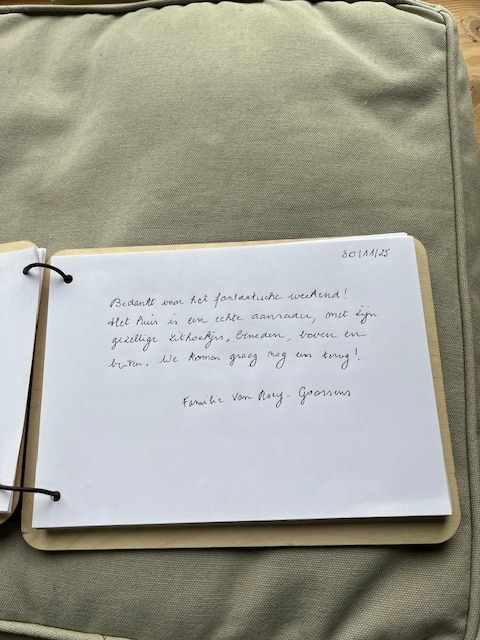 30/11/25
Bedankt voor het fantastische weekend!
Het huis is een echte aanrader, met zijn
gezellige zithoekjes, beneden, boven en
buiten. We komen graag nog eens terug!
Familie Van Roey - Goossens